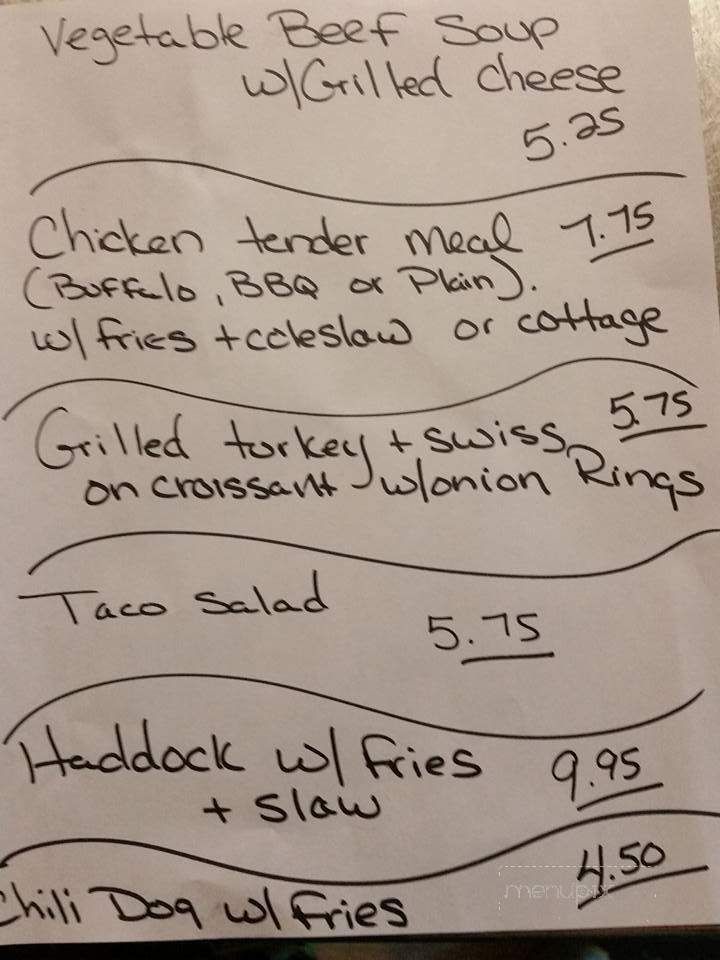 Vegetable Beef Soup
w/Grilled cheese
5.25
Chicken tender meal 7.75
(Buffalo, BBQ or Plain).
w/ fries + coleslaw or cottage
Grilled turkey + swiss 5.75
on croissant w/onion Rings
Taco Salad
5.75
Haddock w/ fries 9.95
+ slaw
4.50
Chili Dog w/ Fries
menupix